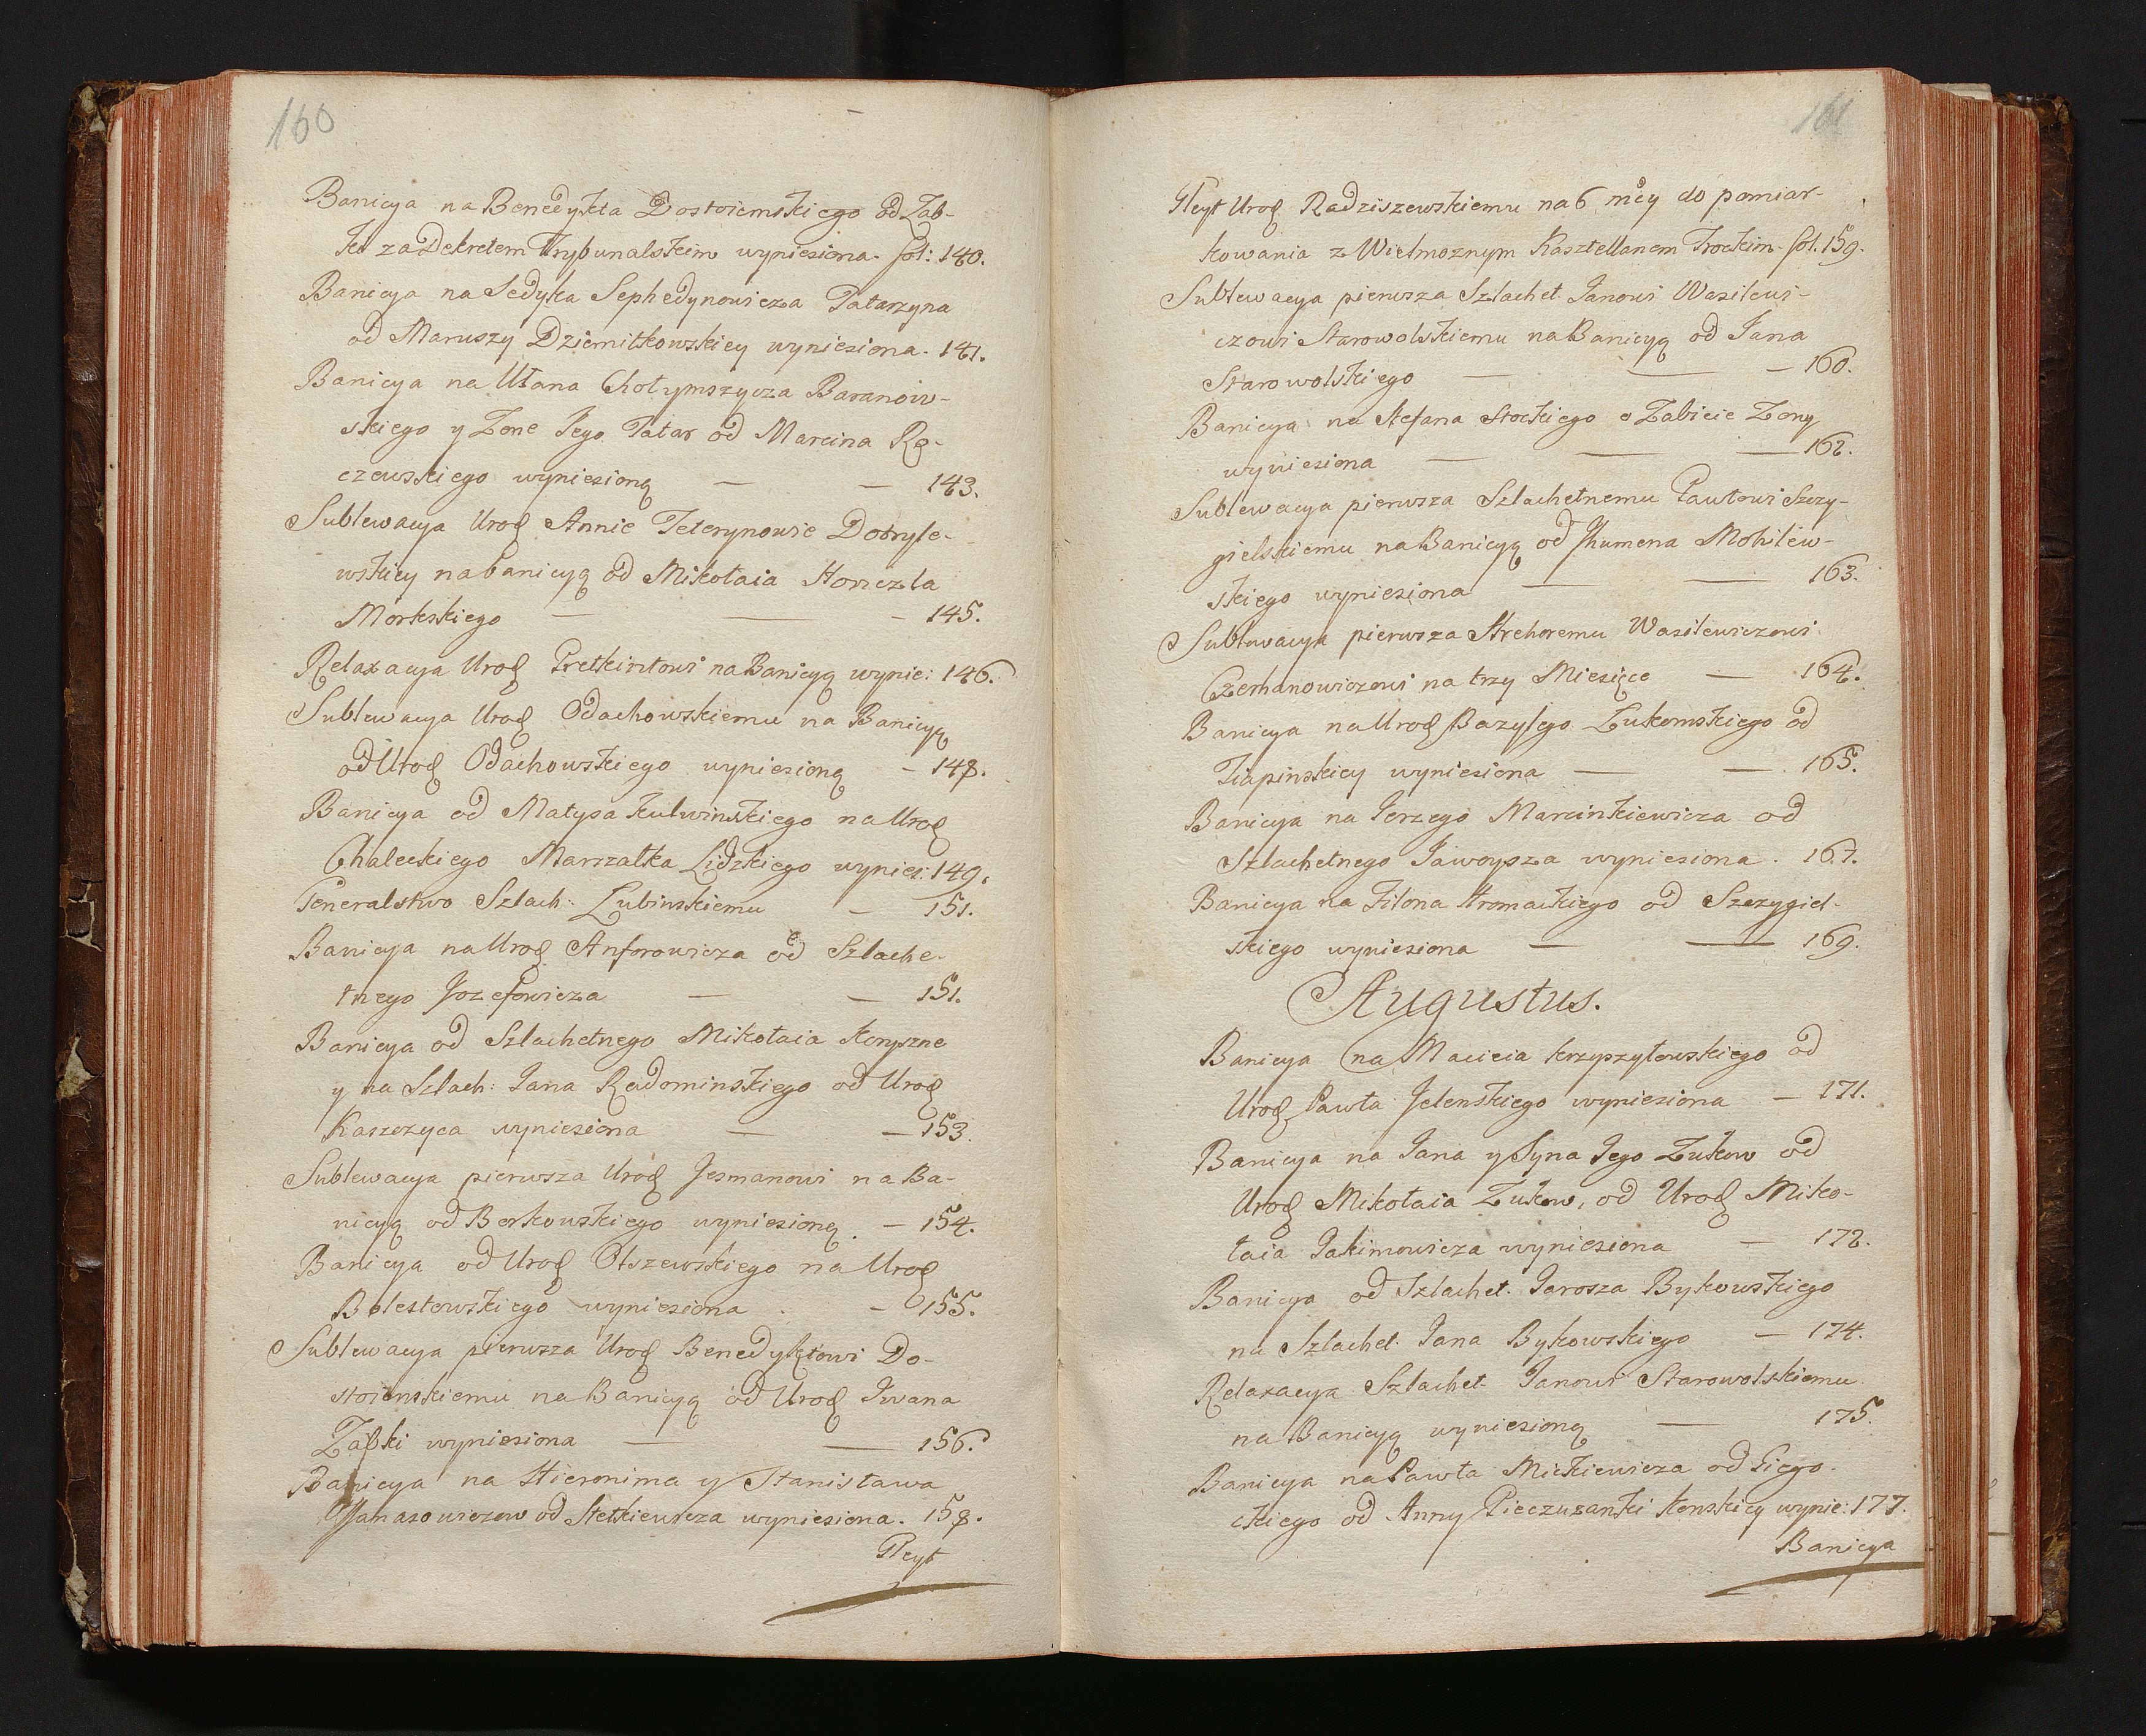 160
Banicya na Benedykta Dostoiemskiego od Zab-
ki za Dekretem Trybunalskim wyniesiona. fol: 140.
Banicya na Sedyka Sephedynowicza Tatarzyna
od Maruszy Dziemitkowskiey wyniesiona. 141.
Banicya na Ułana Chotymszycza Baranow-
skiego y Zone Jego Tatar od Marcina Rę-
czewskiego wyniesioną — — 143.
Sublewacya Urod Annie Teterynowie Dobryle-
wskiey na banicyą od Mikołaia
Morkskiego — — — 145.
Relaxacya Urod Pretkintowi na Banicyą wynie: 146.
Sublewacya Urod Odachowskiemu na Banicyą
od Urod Odachowskiego wyniesioną — 148.
Banicya od Matysa Kulwinskiego na Urod
Chaleckiego Marszałka Lidzkiego wynies: 149.
Generalstwo Szlach: Lubinskiemu — 151.
Banicya na Urod Anforowicza od Szlache-
tnego Jozefowicza — — 151.
Banicya od Szlachetnego Mikołaia Koryzne
y na Szlach: Jana Radominskiego od Urod
Kaszczyca wyniesiona — — 153.
Sublewacya pierwsza Urod Jesmanowi na Ba-
nicyą od Borkowskiego wyniesioną. — 154.
Banicya od Urod Olszewskiego na Urod
Bolestowskiego wyniesiona. — 155.
Sublewacya pierwsza Urod Benedyktowi Do-
stoienskiemu na Banicyą od Urod Iwana
Zabki wyniesiona — — 156.
Banicya na Hieronima y Stanisława
od Stetkiewicza wyniesiona. 158.
Gleyt
161
Gleyt Urod Radziszewskiemu na 6 mcy do pomiar-
kowania z Wielmoznym Kasztellanem Trockim. fol. 159.
Sublewacya pierwsza Szlachet Janowi Wasilewi-
czowi Starowolskiemu na Banicyą od Jana
Starowolskiego — — — 160.
Banicya na Stefana Stockiego o Zabicie Zony
wyniesiona — — — 162.
Sublewacya pierwsza Szlachetnemu Pawłowi Szczy-
gielskiemu na Banicyą od Jhumena Mohilew-
skiego wyniesiona — — 163.
Sublewacya pierwsza Hrehoremu Wasilewiczowi
Czemanowiczowi na trzy Miesięce — 164.
Banicya na Urod Bazylego Łukomskiego od
Tiapinskiey wyniesiona — — 165.
Banicya na Jerzego Marcinkiewicza od
Szlachetnego Jaworysza wyniesiona. 167.
Banicya na Filona Hromackiego od Szczygiel-
skiego wyniesiona — — 169.
Augustus.
Banicya na Macieia Krzyszytowskiego od
Urod Pawła Jelenskiego wyniesiona — 171.
Banicya na Jana y Syna Jego Zukow od
Urod Mikołaia Zukow, od Urod Miko-
łaia Jakimowicza wyniesiona — 172.
Banicya od Szlachet. Jarosza Bykowskiego
na Szlachet. Jana Bykowskiego — 174.
Relaxacya Szlachet. Janowi Starowolskiemu
na Banicyą wyniesioną — 175.
Banicya na Pawła Mickiewicza od Giego-
ckiego od Anny wynie: 177.
Banicya